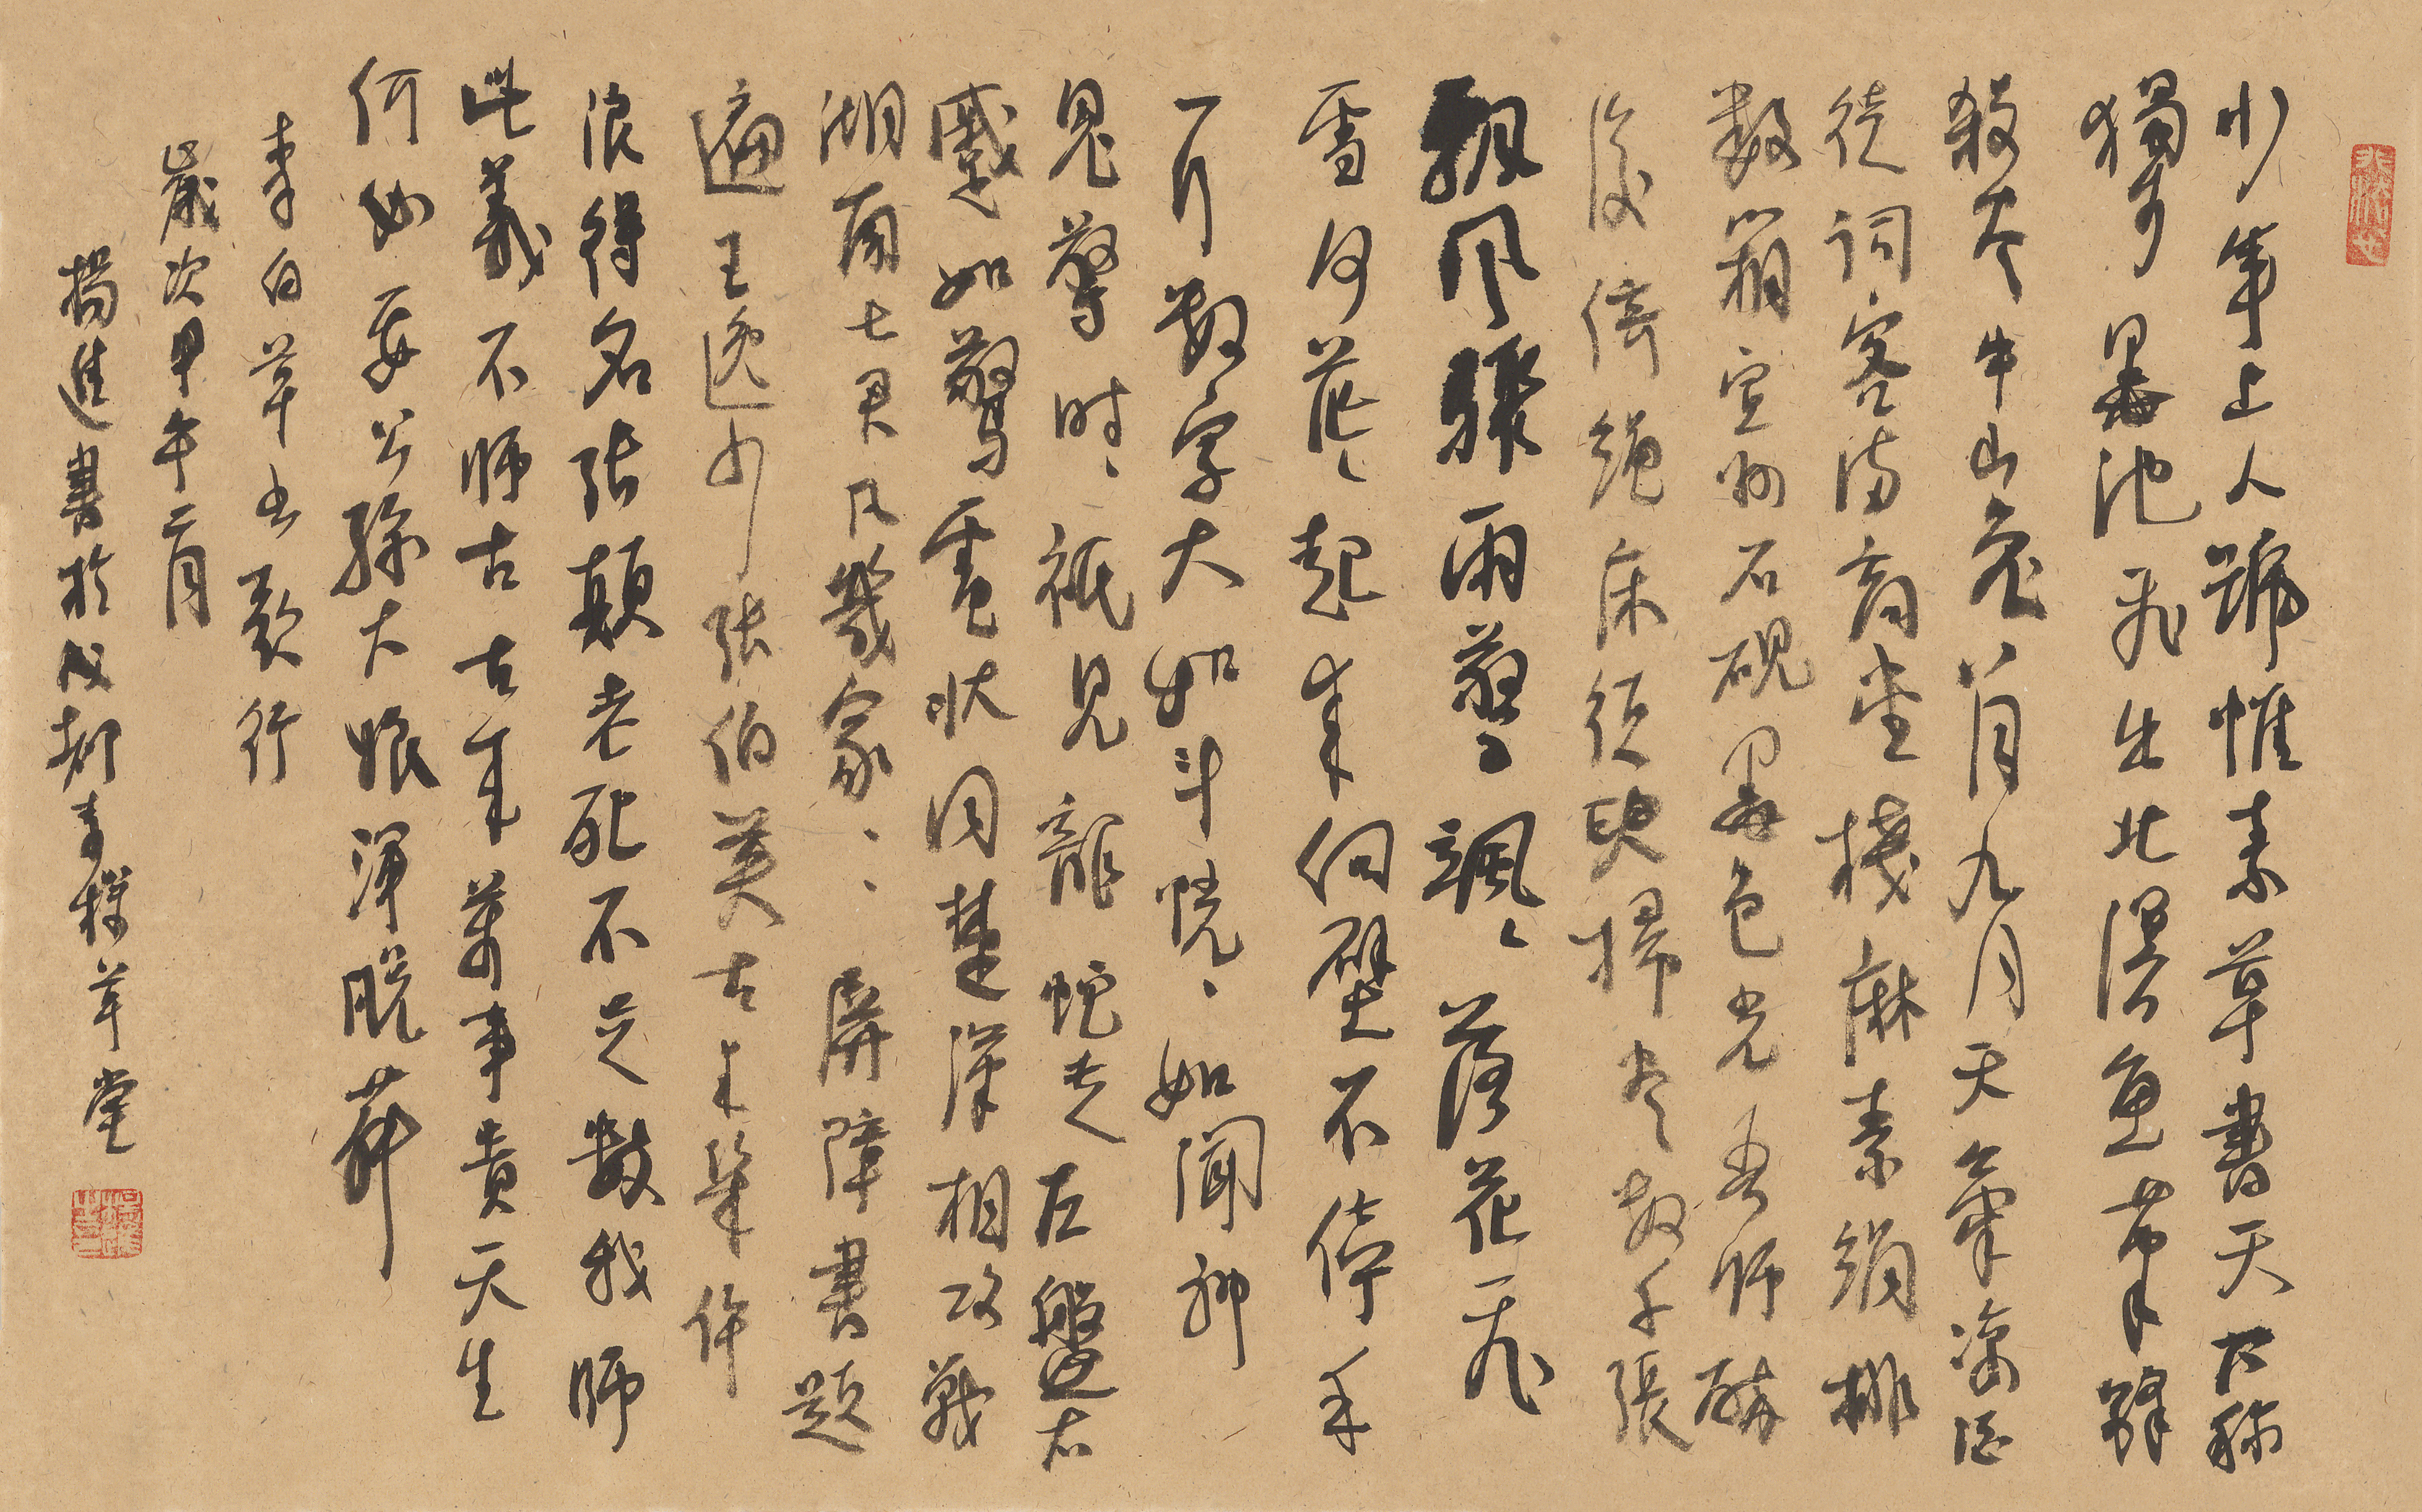 少年上人號懷素草書天下稱
獨步墨池飛出北溟魚筆鋒
殺尽中山兔八月九月天氣凉酒
徒詞客滿高堂牋麻素絹排
數箱宣州石硯墨色光吾師醉
後倚繩床須臾掃尽數千張
飄風驟雨驚々颯々落花飛
雪何茫々起来向壁不停手
一行數字大如斗恍々如聞神
鬼驚時々祇見龍蛇走左盤右
蹙如驚電狀同楚漢相攻戰
湖南七郡凡幾家々々屏障書題
遍王逸少張伯英古来幾許
浪得名張顛老死不足數我師
此義不師古古来萬事貴天生
何必要公孫大娘渾脱舞
李白草书歌行
歲次甲午二月
楊進書於 草堂